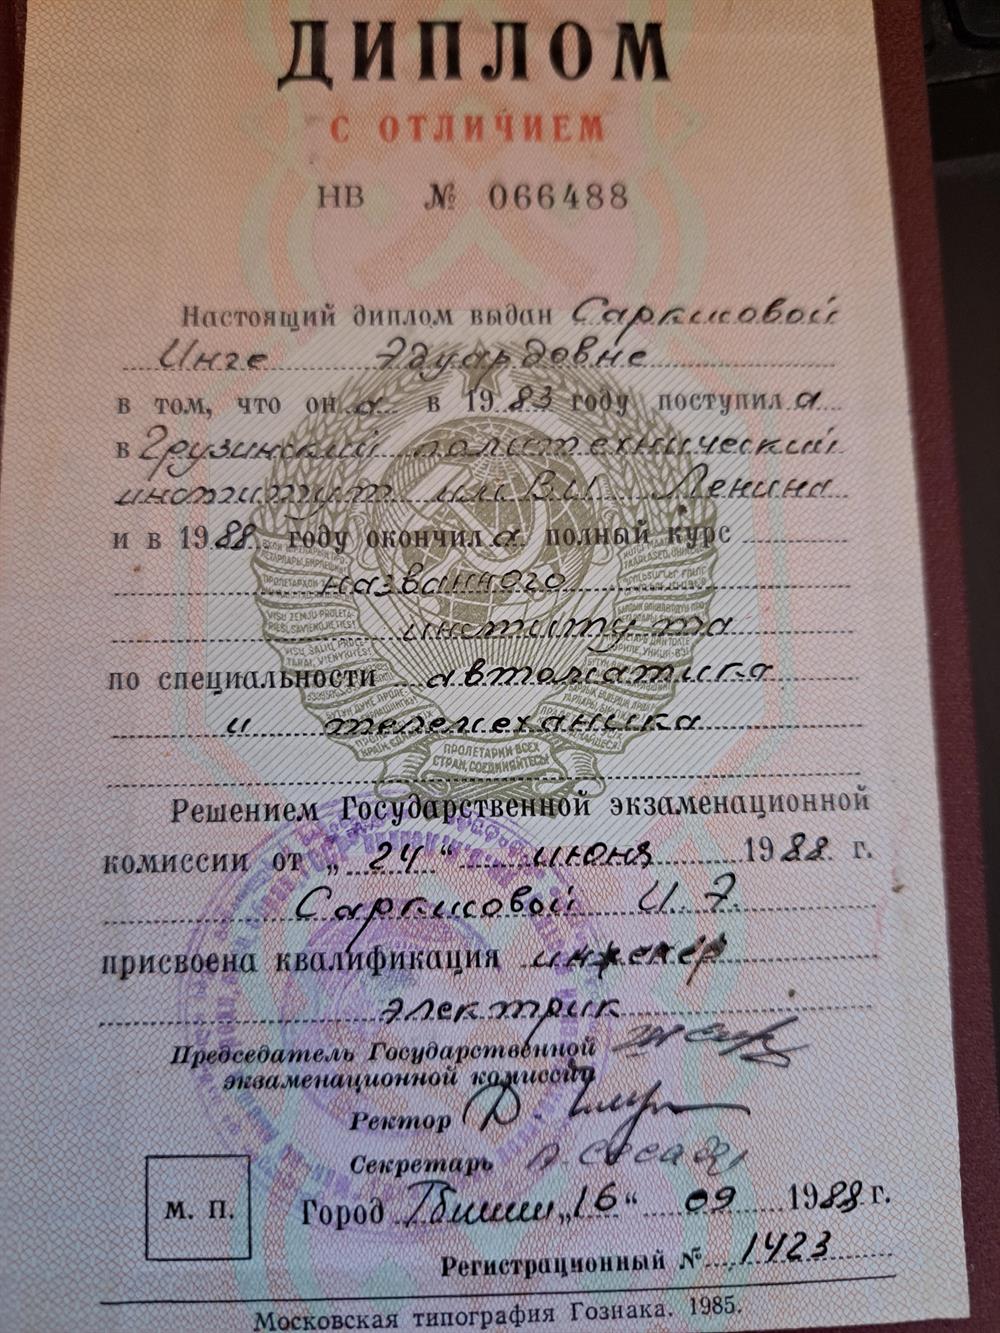 ДИПЛОМ
С ОТЛИЧИЕМ
НВ № 066488
Настоящий диплом выдан Саркисовой
Инге Эдуардовне
в том, что она в 1983 году поступила
в Грузинский политехнический
институт им В.И. Ленина
и в 1988 году окончила полный курс
названного
института
по специальности автоматика
и телемеханика
Решением Государственной экзаменационной
комиссии от „24“ июня 1988 г.
Саркисовой И.Э.
присвоена квалификация инженер
электрик
Председатель Государственной
экзаменационной комиссии
Ректор
Секретарь
М. П.
Город Тбилиси „16“ 09 1988 г.
Регистрационный № 1423
Московская типография Гознака. 1985.
ПРОЛЕТАРИИ ВСЕХ
СТРАН, СОЕДИНЯЙТЕСЬ!